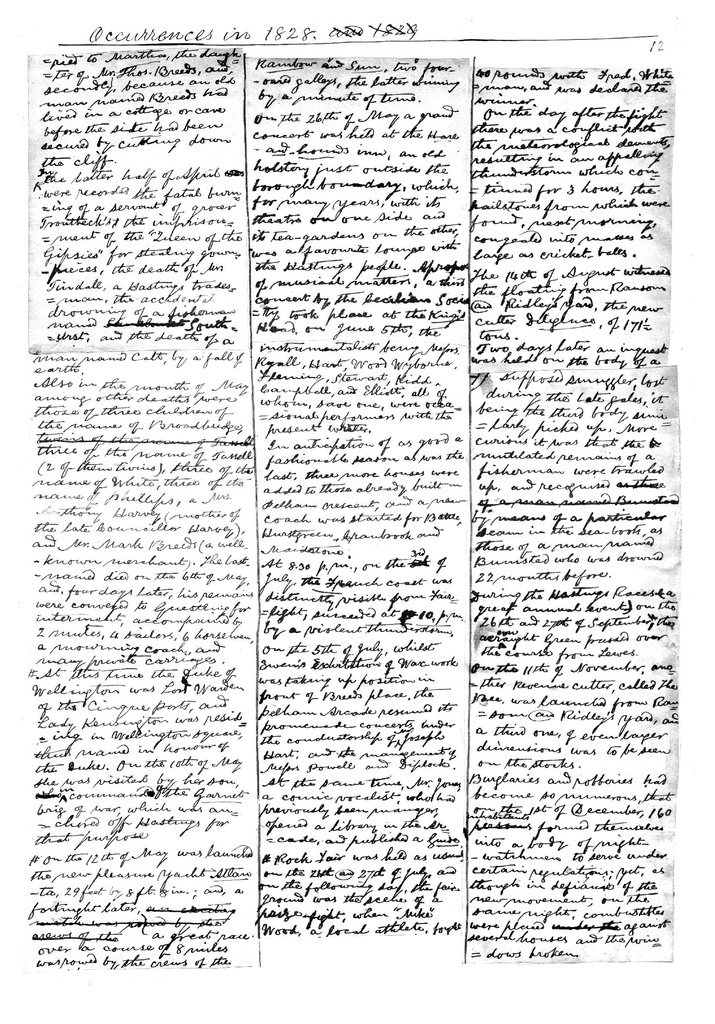 Occurrences in 1828. and 1829
12
=ried to Martha, the daugh
=ter of Mr. Thos. Breeds, and
secondly, because an old
man named Breeds had
lived in a cottage or cave
before the site had been
secured by cutting down
the cliff.
In the latter half of April
were recorded the fatal burn
=ing of a servant of grocer
Troutbeck's; the imprison-
=ment of the "Queen of the
Gipsies" for stealing gown-
=pieces, the death of Mr.
Tindall, a Hastings trades-
=man, the accidental
drowning of a fisherman
named South=
=hurst, and the death of a
man named Catt, by a fall of
earth.
Also in the month of May
among other deaths were
those of three children of
the name of Broadbridge,
twins of the name of Tassell
three of the name of Tassell
(2 of them twins), three of the
name of White, three of the
name of Phillips, a Mrs.
Anthony Harvey (mother of
the late Councillor Harvey),
and Mr. Mark Breeds (a well
-known merchant). The last-
named died on the 6th of May,
and, four days later, his remains
were conveyed to Guestling for
interment, accompanied by
2 mutes, 4 sailors, 6 horsemen,
a mourning coach, and
many private carriages.
# At this time the Duke of
Wellington was Lord Warden
of the Cinque Ports, and
Lady Kennington was resid-
=ing in Wellington square,
thus named in honour of
the Duke. On the 10th of May
she was visited by her son,
commander of the Garnet
brig of war, which was an-
=chored off Hastings for
that purpose
# On the 12th of May was launched
the new pleasure yacht Attan-
-ta, 29 feet by 8 ft. 8 in.; and, a
fortnight later, an exciting
match was rowed by the
crews of the a great race
over a course of 8 miles
was rowed by the crews of the
Rainbow and Sun, two four-
-oared galleys, the latter winning
by a minute of time.
On the 26th of May a grand
concert was held at the Hare
-and-hounds inn, an old
holstery just outside the
borough boundary, which,
for many years, with its
theatre on one side and
its tea-gardens on the other,
was a favourite lounge with
the Hastings people. Apropos
of musical matters, a third
concert by the Cecilian Socie
=ty took place at the King's
Head, on June 5th, the
instrumentalists being Messrs.
Ryall, Hart, Wood, Wyborne,
Fleming, Stewart, Kidd,
Campbell, and Elliott, all of
whom, save one, were occa=
=sional performers with the
present writer.
In anticipation of as good a
fashionable season as was the
last, three more houses were
added to those already built in
Pelham crescent, and a new
coach was started for Battle,
Hurstgreen, Cranbook and
Maidstone.
At 8.30 p.m., on the 3rd of
July, the French coast was
distinctly visible from Fair-
=light, succeeded at 10, p.m.
by a violent thunderstorm.
On the 5th of July, whilst
Ewen's Exhibition of Wax work
was taking up position in
front of Breeds place, the
Pelham Arcade resumed its
promenade concerts, under
the conductorship of Joseph
Hart; and the management of
Messrs Powell and Diplock.
At the same time, Mr. Jones,
a comic vocalist, who had
previously been manager,
opened a library in the Ar-
=cade, and published a Guide.
# Rock Fair was held as usual
on the 26th and 27th of July, and
on the following day, the fair
ground was the scene of a
prize fight, when "Mike"
Wood, a local athlete, fought
40 rounds with Fred. White-
=man, and was declared the
winner.
On the day after the fight
there was a conflict with
the meteorological elements,
resulting in an appalling
thunderstorm which con-
=tinued for 3 hours, the
hailstones from which were
found, next morning,
congealed into masses as
large as cricket balls.
The 14th of August witnessed
the floating from Ransom
and Ridley's yard, the new
cutter Diligence, of 171
tons.
Two days later an inquest
was held on the body of a
supposed smuggler, lost
during the late gales, it
being the third body simi
=larly picked up. More
curious it was that the
mutilated remains of a
fisherman were trawled
up, and recognised as those
of a man named Bumsted
by means of a particular
seam in the sea-boots, as
those of a man named
Bumsted who was drowned
22 months before.
During the Hastings Races (a
great annual event) on the
26th and 27th of September, the
Green passed over
the course from Lewes.
On the 11th of November, ano
=ther Revenue cutter, called the
was launched from Ran
=som and Ridley's yard, and
a third one, of even larger
dimensions was to be seen
on the stocks.
Burglaries and robberies had
become so numerous, that
on the 1st of December, 160
inhabitants
persons formed themselves
into a body of night
-watchmen to serve under
certain regulations; yet, as
though in defiance of the
new movement, on the
same night, combustibles
were placed under the against
several houses and the win
=dows broken